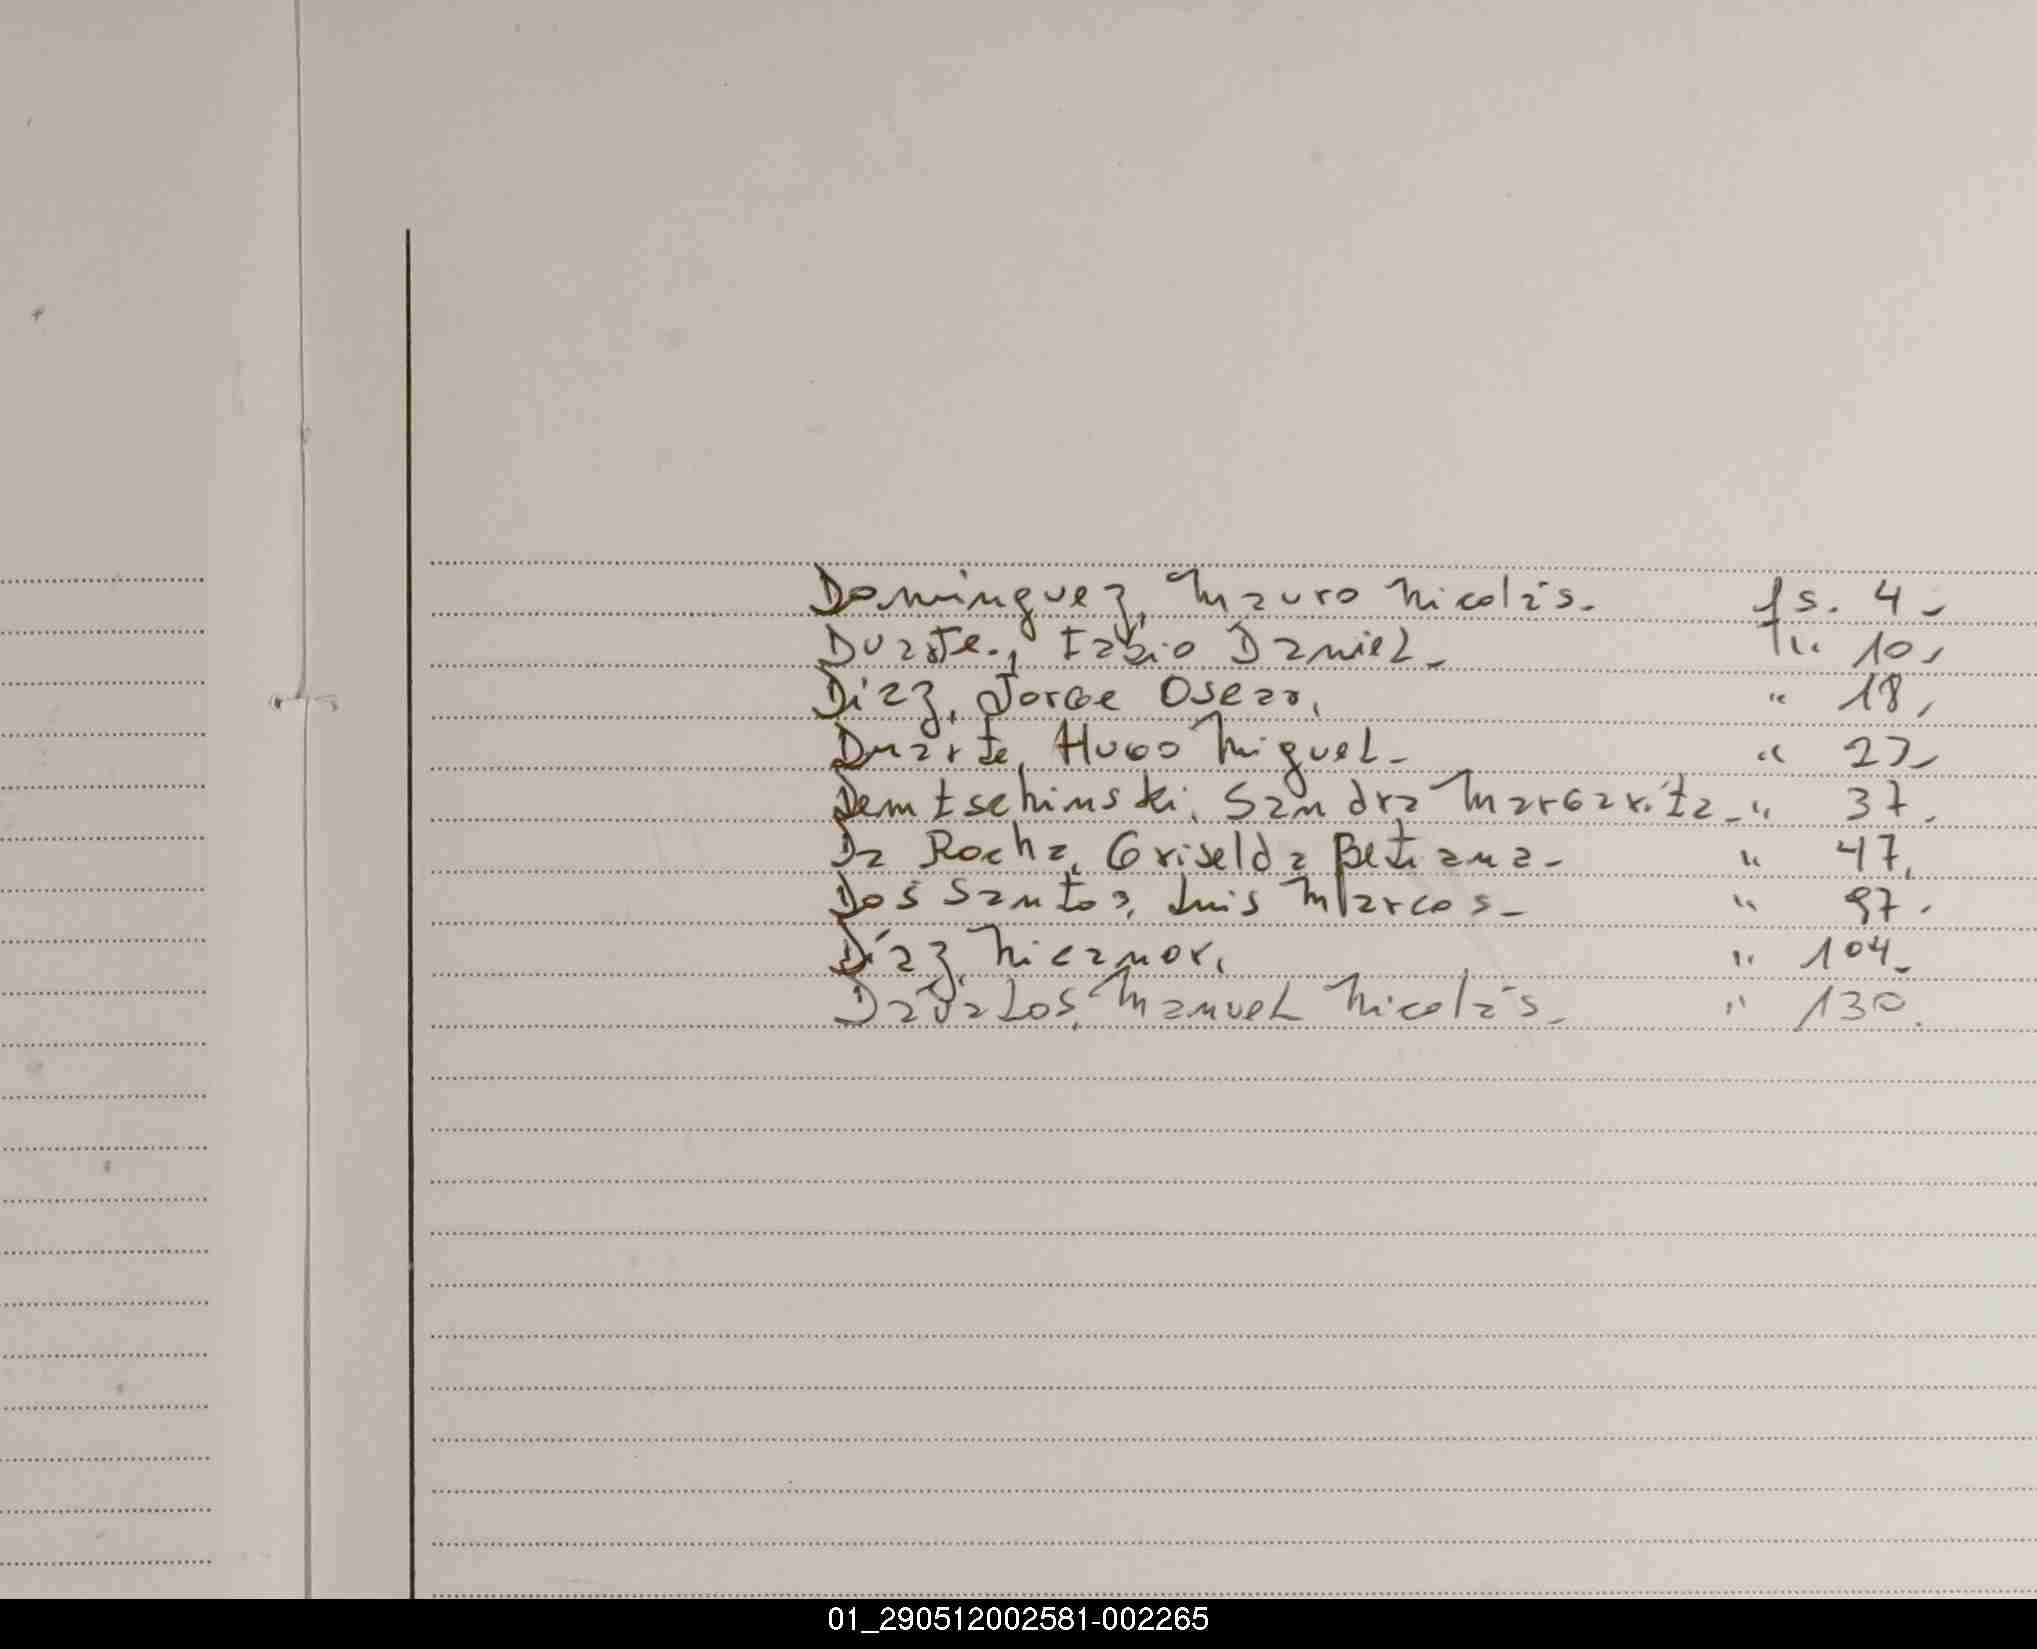 Dominguez, Mauro Nicolás. fs. 4_
Duarte., Fabio Daniel_ " 10,
Díaz, Jorge Oscar, " 18,
Duarte, Hugo Miguel_ " 27_
Demtschinski, Sandra Margarita_ " 37.
Da Rocha, Griselda Betiana_ " 47,
Dos Santos, Luis Marcos_ " 97.
Díaz, Nicanor, " 104_
Dávalos, Manuel Nicolás_ " 130.
01_290512002581-002265